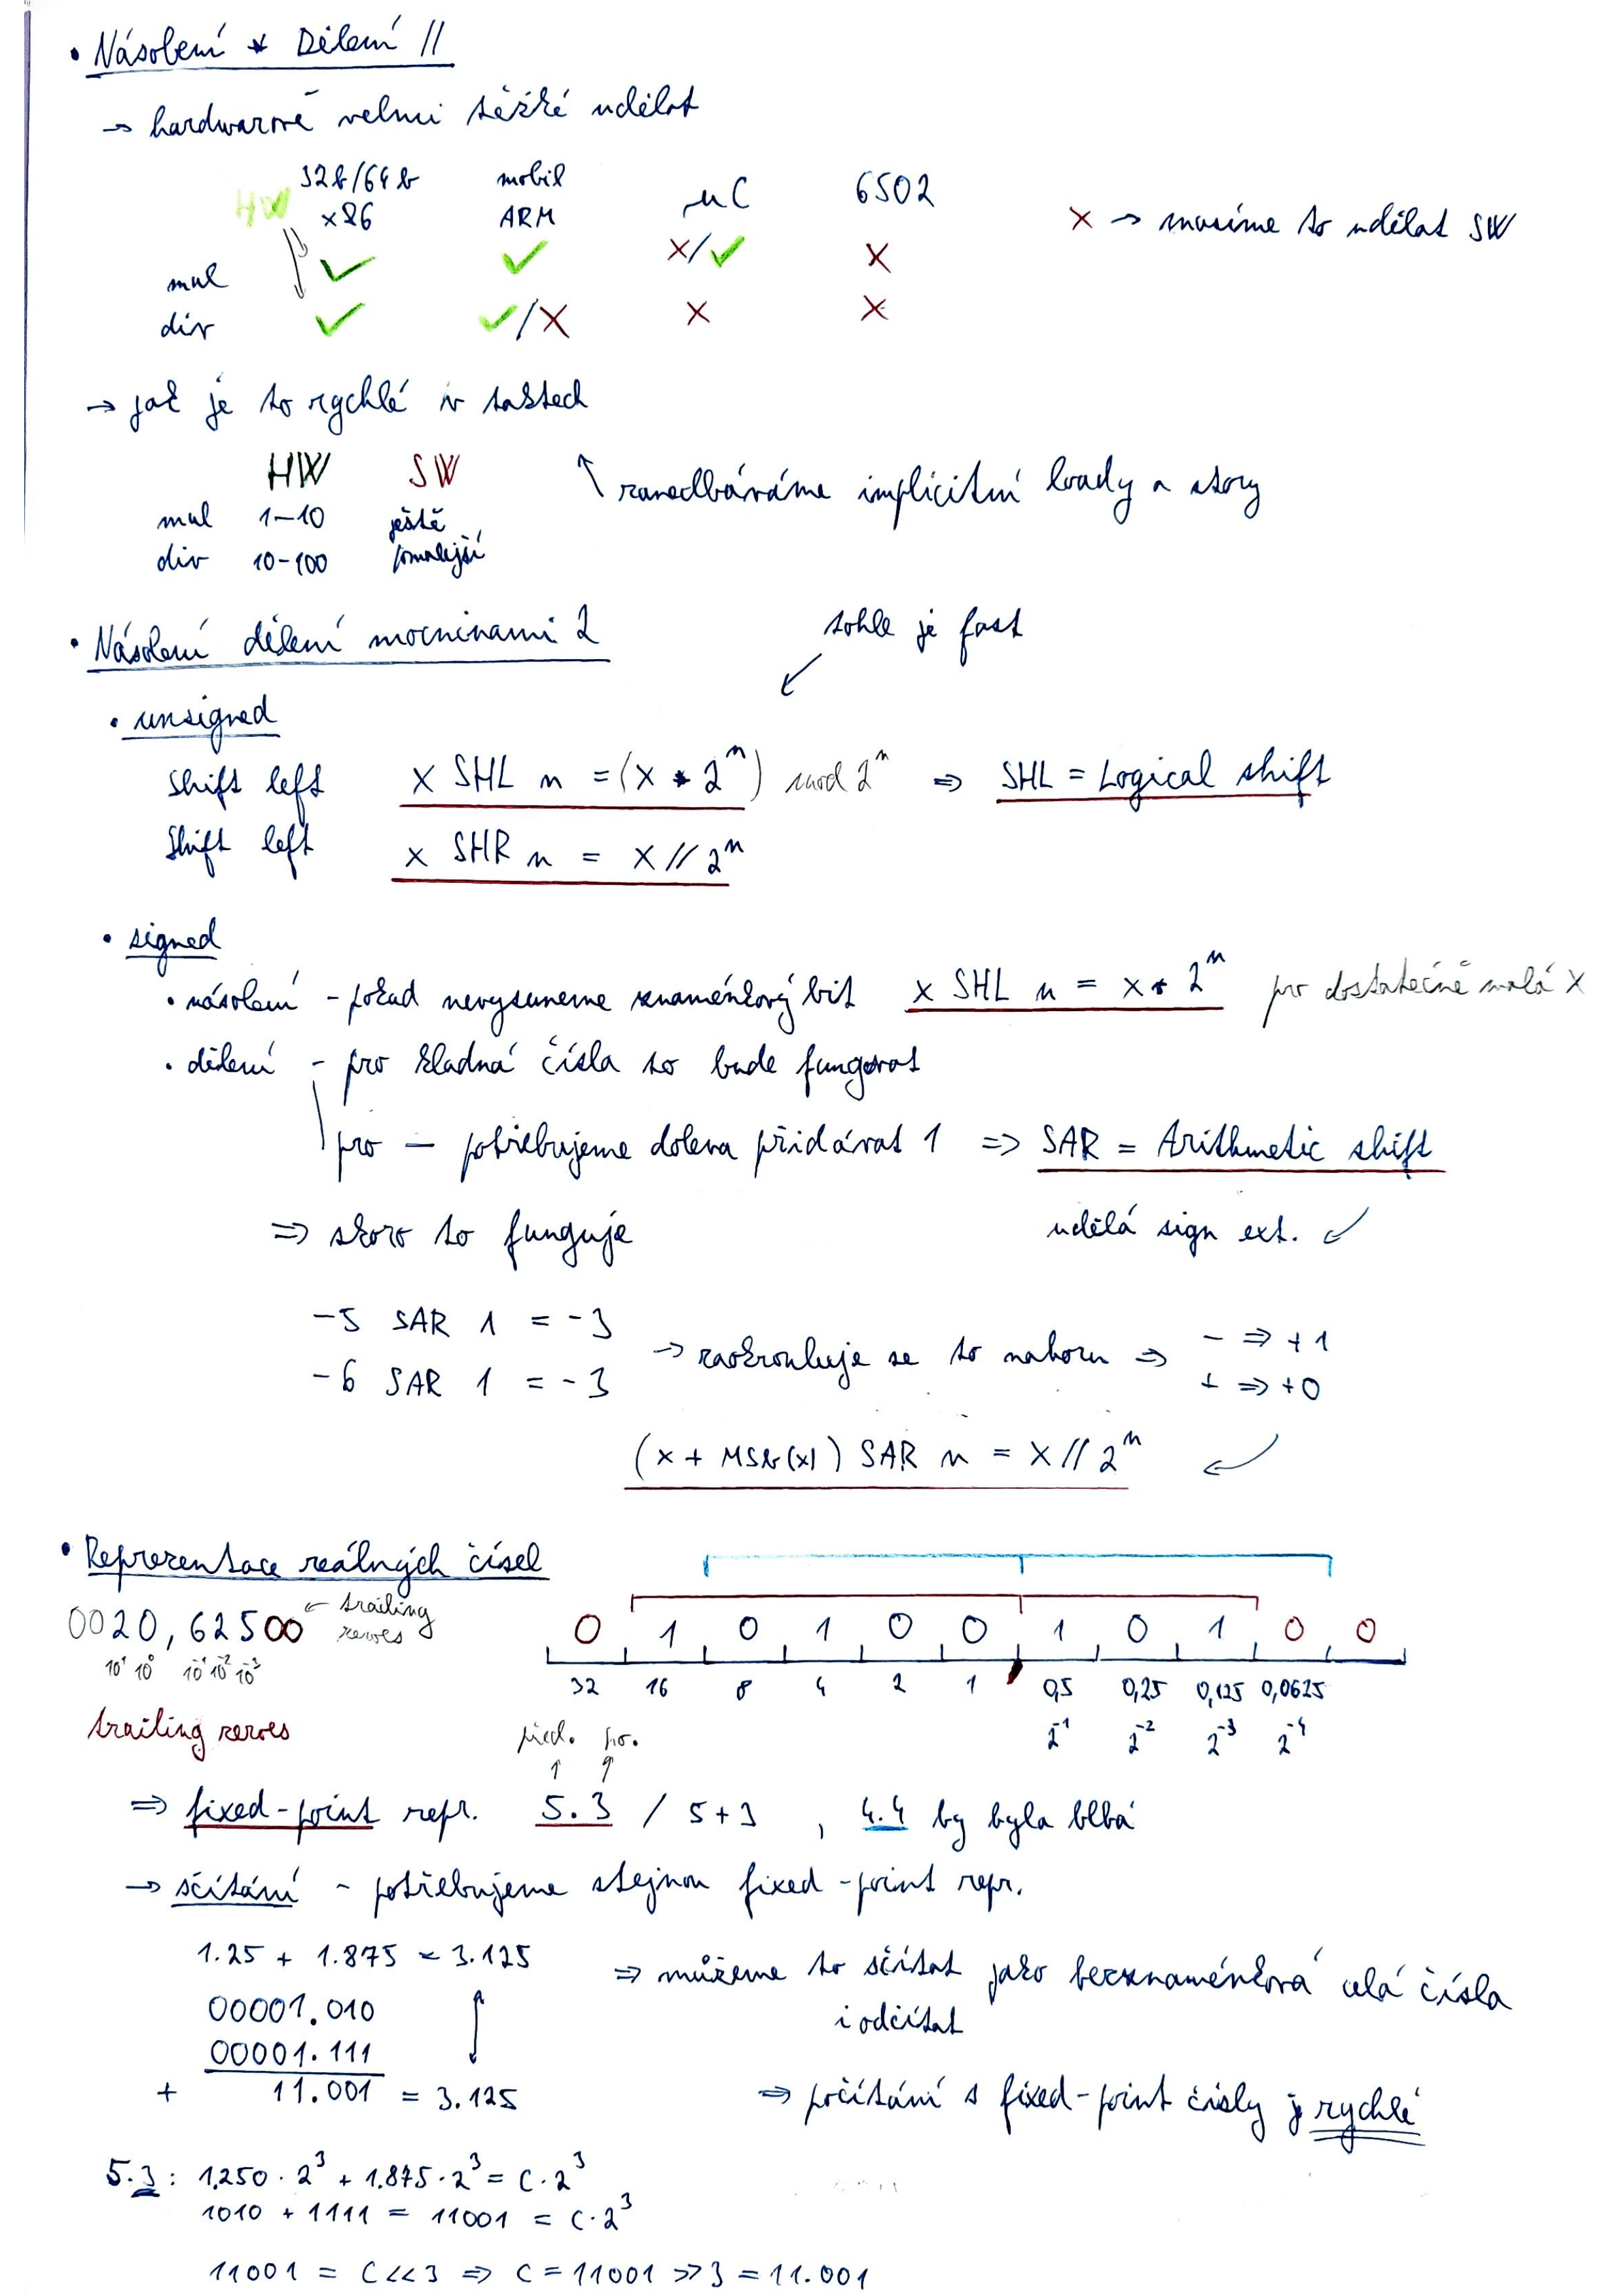 • Násobení * Dělení //
→ hardwarově velmi těžké udělat
HW 32b/64b x86 mobil ARM μC 6502
mul ✓ ✓ X/✓ X
div ✓ ✓/X X X
X → musíme to udělat SW
→ jak je to rychlé v taktech
HW SW
mul 1–10 ještě
div 10-100 pomalejší
↑ zanedbáváme implicitní loady a story
• Násobení dělení mocninami 2
tohle je fast
• unsigned
Shift left x SHL n = (x * 2^n) mod 2^n ⇒ SHL = Logical shift
Shift left x SHR n = x // 2^n
• signed
• násobení - pokud nevysuneme znaménkový bit x SHL n = x * 2^n pro dostatečně malá x
• dělení - pro kladná čísla to bude fungovat
pro — potřebujeme doleva přidávat 1 ⇒ SAR = Arithmetic shift
⇒ skoro to funguje
udělá sign ext. ↙
-5 SAR 1 = -3
-6 SAR 1 = -3
→ zaokrouhluje se to nahoru ⇒ - ⇒ +1
+ ⇒ +0
(x + MSb(x)) SAR n = x // 2^n
• Reprezentace reálných čísel
0020,62500 ← trailing zeroes
10^1 10^0 10^-1 10^-2 10^-3
trailing zeroes
0 1 0 1 0 0 1 0 1 0 0
32 16 8 4 2 1 0,5 0,25 0,125 0,0625
2^-1 2^-2 2^-3 2^-4
před. po.
⇒ fixed-point repr. 5.3 / 5+3 , 4.4 by byla blbá
→ sčítání - potřebujeme stejnou fixed-point repr.
1.25 + 1.875 = 3.125
00001.010
00001.111
+ 11.001 = 3.125
⇒ můžeme to sčítat jako bezznaménková celá čísla
i odčítat
⇒ počítání s fixed-point čísly je rychlé
5.3 : 1,250 · 2^3 + 1.875 · 2^3 = C · 2^3
1010 + 1111 = 11001 = C · 2^3
11001 = C << 3 ⇒ C = 11001 >> 3 = 11.001